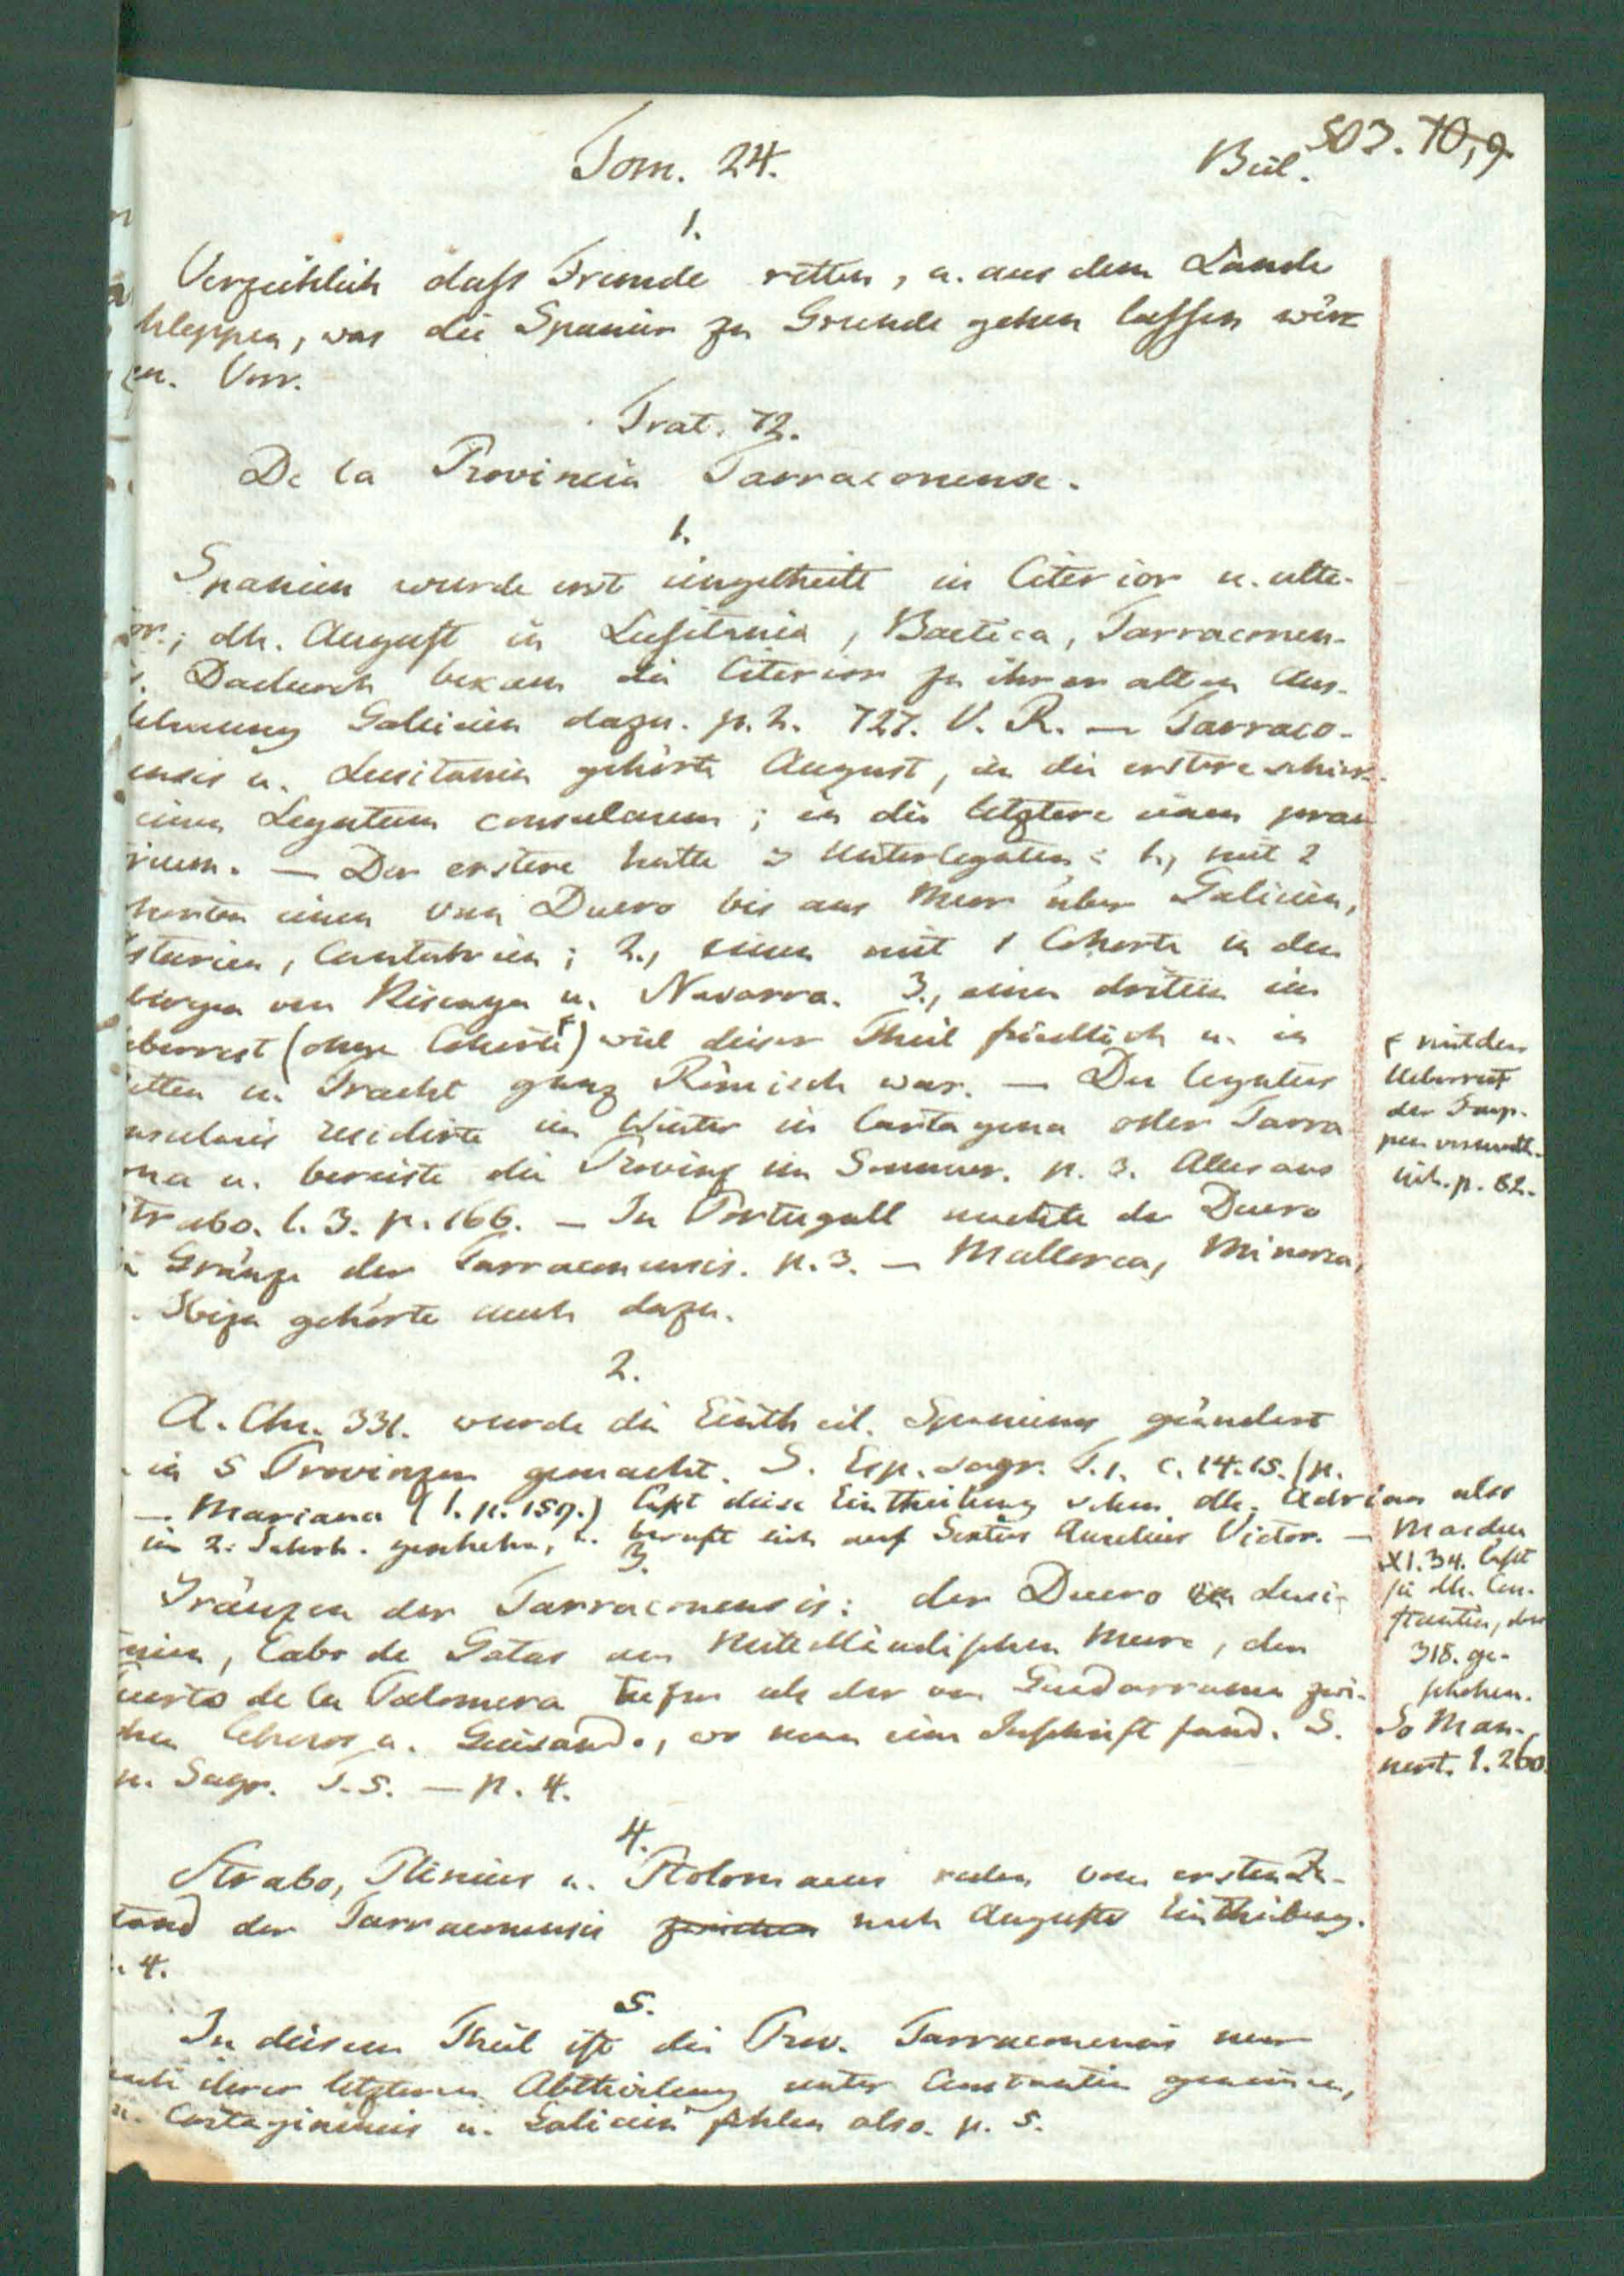 Tom. 24.
Bül. 503. 70,9
1.
Verzeihlich dass Fremde retten, u. aus dem Lande
hleppen, was die Spanier zu Grunde gehen lassen wür
en. Vorr.
Trat. 72.
De la Provincia Tarraconense.
1.
Spanien wurde erst eingetheilt in Citerior u. ulte-
or.; dh. August in Lusitania, Baetica, Tarraconen-
s. Dadurch bekam die Citerior zu ihrer alten Aus-
dehnung Galicien dazu. p. 2. 727. V. R. — Tarraco-
ensis u. Lusitania gehörte August, in die erstere schick-
einen Legatum consularem; in die letztere einen prae
rium. — Der erstere hatte 3 Unterlegaten: 1., mit 2
horten einen vom Duero bis ans Meer über Galicien,
sturien, Cantabrien; 2., einen mit 1 Cohorte in den
birgen von Biscaya u. Navarra. 3., einen dritten im
eberrest (ohne Cohorte) weil dieser Theil friedlich u. in
itten u. Tracht ganz Römisch war. — Der legatus
nsularis residirte im Winter in Cartagena oder Tarra
ona u. bereiste die Provinz im Sommer. p. 3. Alles aus
Strabo. l. 3. p. 166. — In Portugall machte der Duero
Gränze der Tarraconensis. p. 3. — Mallorca, Minorca,
Ibiza gehörte auch dazu.
+ mit dem
Ueberrest
der Trup-
pen
p. 82.
2.
A. Chr. 331. wurde die Eintheil. Spaniens geändert
in 5 Provinzen gemacht. S. Esp. sagr. T. 1. c. 14. 15. (p.
— Mariana (1. p. 159.) lässt diese Eintheilung schon dh. Adrian also
im 2. Jahrh. geschehn, u. beruft sich auf Sextus Aurelius Victor. —
Masdeu
XI. 34. lässt
sie dh. Con-
stantin,
318. ge-
schehen.
So Man-
nert. 1. 260.
3.
Gränzen der Tarraconensis: der Duero in Lusi-
anien, Cabo de Gatas am Mittelländischen Meere, den
uerto de la Palomera tiefer als der von Guadarrama zwi-
chen Cebreros u. Guisando, wo man eine Inschrift fand. S.
p. Sagr. T. 5. — p. 4.
4.
Strabo, Plinius u. Ptolomaeus reden vom ersten Zu-
stand der Tarraconensis zwischen nach Augusts Eintheilung.
. 4.
5.
In diesem Theil ist die Prov. Tarraconensis nur
nach ihrer letzteren Abtheilung unter Constantin genommen,
Cartaginensis u. Galicien fehlen also. p. 5.